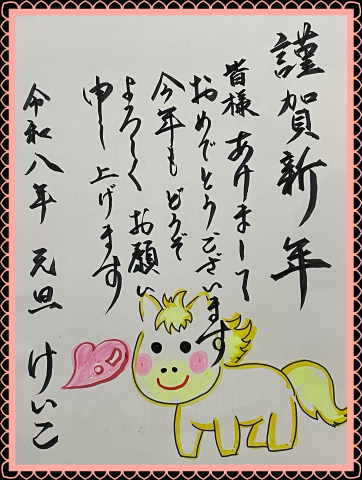 謹賀新年
皆様 あけまして
おめでとうございます
今年も どうぞ
よろしく お願い
申し上げます
令和八年 元旦 けいこ